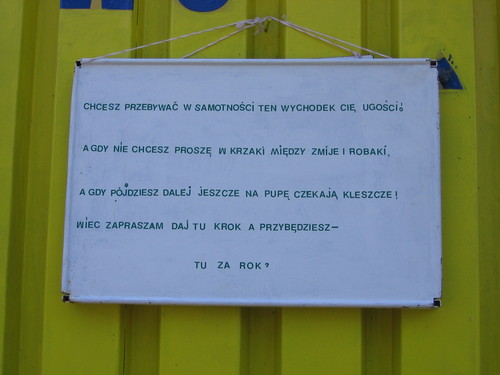 CHCESZ PRZEBYWAĆ W SAMOTNOŚCI TEN WYCHODEK CIĘ UGOŚCI!
A GDY NIE CHCESZ PROSZĘ W KRZAKI MIĘDZY ZMIJE I ROBAKI,
A GDY PÓJDZIESZ DALEJ JESZCZE NA PUPĘ CZEKAJĄ KLESZCZE!
WIEC ZAPRASZAM DAJ TU KROK A PRZYBĘDZIESZ–
TU ZA ROK?